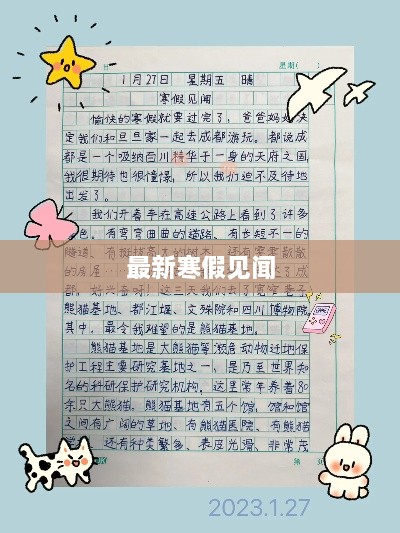 日 星期( )
1月27日 星期五 晴
寒假见闻
愉快的寒假就要过完了,爸爸妈妈决
定我们和旦旦家一起去成都游玩。都说成
都是一个吸纳百川精华于一身的天府之国,
我很期待也很憧憬,所以我们迫不及待地
出发了。
我们开着车在高速公路上看到了许多
景色。有弯弯曲曲的道路、有长短不一的
隧道、有
的房屋
最新寒假见闻
部,好兴奋呀!这三天我们去了宽窄巷子
熊猫基地、都江堰、文殊院和四川博物院
其中,最令我难望的是熊猫基地。
熊猫基地是大熊猫等濒危动物迁地保
护工程主要研究基地之一,是乃至世界知
名的科研保护研究机构。这里常年养着80
余只大熊猫。熊猫基地有五个馆,馆和馆
之间有广阔的草地、有熊猫医院、有熊猫
还有种类繁多、表皮光滑、非常茂
第 页
2023.1.27